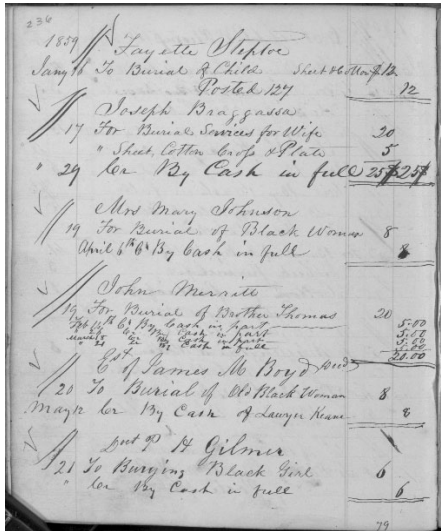 236
1859 Fayette Steptoe
Jany 16 To Burial of Child Sheet & Cotton $12
Posted 127 12
Joseph Braggassa
17 For Burial Services for Wife 20
" Sheet, Cotton Cross & Plate 5
" 29 Cr By Cash in full 25 $25
Mrs Mary Johnson
19 For Burial of Black Woman 8
April 6th Cr By Cash in full 8
John Merritt
19 For Burial of Brother Thomas 20
Feb 16th Cr By Cash in part 5.00
Cr By Cash in part 5.00
Cr By Cash in part 5.00
Cr Cash in full 5.00
20.00
Est of James M Boyd
20 To Burial of Old Black Woman 8
May 12 Cr By Cash of Lawyer Keane 8
P H Gilmer
21 To Burying Black Girl 6
" Cr By Cash in full 6
79